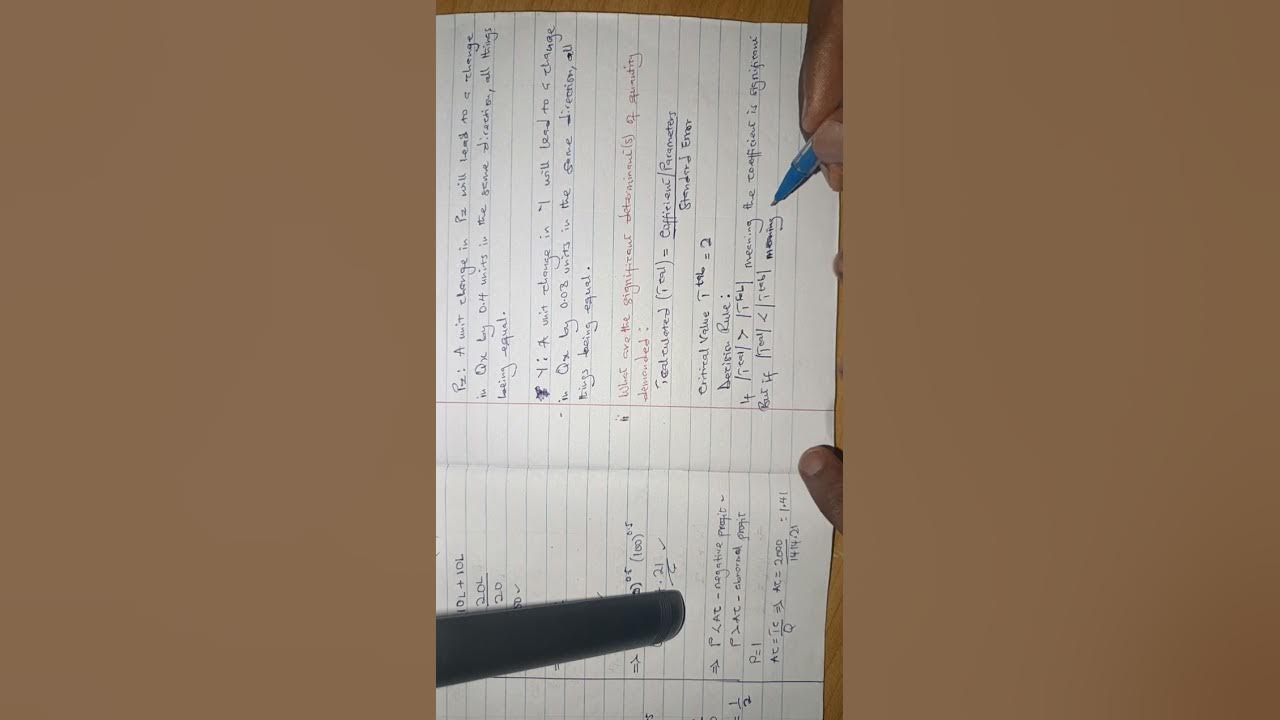 Pz: A unit change in Pz will lead to a change
in Qx by 0.4 units in the same direction, all things
being equal.
Y: A unit change in Y will lead to a change
- in Qx by 0.08 units in the same direction, all
things being equal.
ii What are the significant determinant(s) of quantity
demanded:
Tcalculated (Tcal) = Cofficient/Parameters
Standard Error
Critical Value Ttab = 2
Decision Rule:
If |Tcal| > |Ttab| meaning the coefficient is significant
But if |Tcal| < |Ttab| meaning
10L + 10L
20L
20
=> (100)^0.5
.21 ✓
=> P < AC - negative profit
P > AC - abnormal profit
P = 1
AC = TC/Q => AC = 2000/1414.21 = 1.41
= 1/2